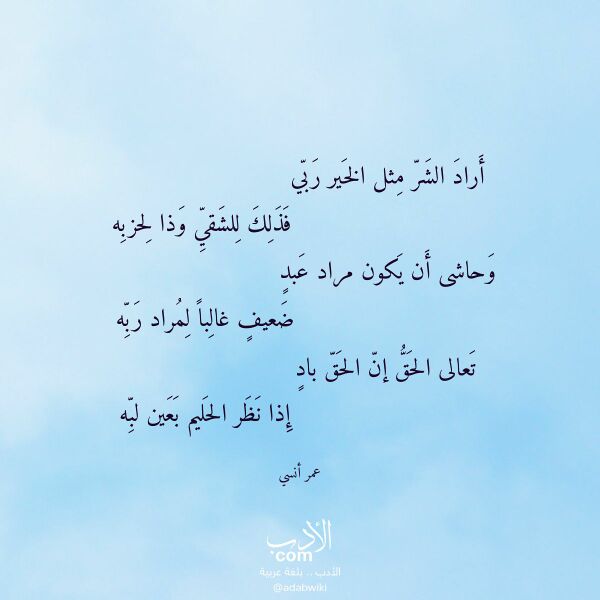 أَرادَ الشَرّ مِثل الخَير رَبّي
فَذَلِكَ لِلشَقيِّ وَذا لِحزبِه
وَحاشى أَن يَكون مراد عَبدٍ
ضَعيفٍ غالِباً لِمُراد رَبِّه
تَعالى الحَقُّ إنّ الحَقّ بادٍ
إِذا نَظَر الحَليم بَعَين لبِّه
عمر أنسي
الأدب
com
الأدب .. بلغة عربية
@adabwiki